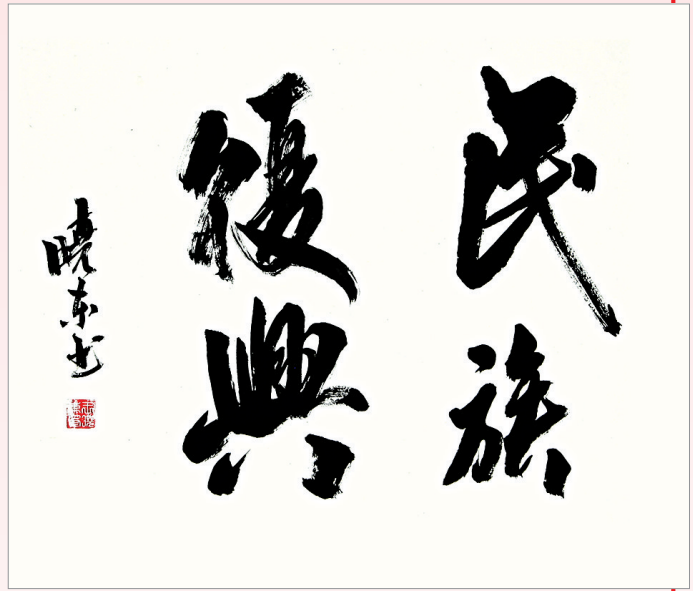 民族
復興
曉东书